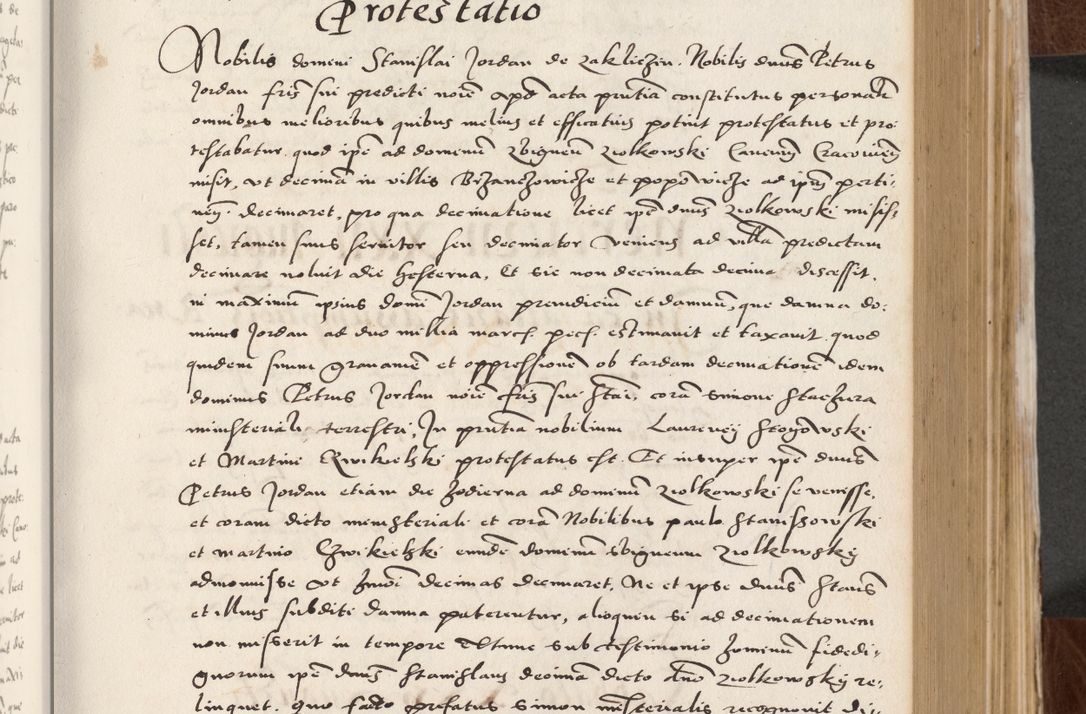 Protestatio
Nobilis domini Stanislai Jordan de Zakliczin. Nobilis dnūs Petrus
Jordan frīs sui predicti noīe apd acta pn̄tia constitutus personalr̄
omnibus melioribus quibus melius et efficatius potuit protestatus et pro-
testabatur quod ipē ad dominū Zbigneū Ziolkowski Canonicū Cracovien̄
misit, ut decimā in villis Brzanczowicze et popowicze ad ipm̄ perti-
nen̄. decimaret, pro qua decimatione licet ipē dnūs Ziolkowski misis-
set, tamen suus servitor seu decimator veniens ad villā predictam
decimare noluit die hesterna, Et sic non decimata decima discessit,
in maximum ipsius domī Jordan preiudicium et damnum, que damna do-
minus Jordan ad duo millia marc. pec. estimavit et taxavit quod
quidem suum gravamē et oppressionē ob tardam decimationē idem
dominus Petrus Jordan noīe frīs sui Stāi, corā Simone Staczura
ministeriali terrestri, In pn̄tia nobilium Laurencÿ Stogowski
et Martini Czwikielski protestatus est. Et insuper ipē dnūs
Petrus Jordan etiam die hodierna ad dominū Ziolkowski se venisse,
et coram dicto ministeriali et corā Nobilibus paulo Staniszowski
et martino Czwikielski eundē dominum Sbigneum Ziolkowskÿ
admonuisse ut decimas decimaret, Ne et ipse dnūs Staūs
et illius subditi damna paterentur, alioquin si ad decimationem
non miserit in tempore extunc sub testimonio hominū fidedi-
gnorum ipē dnūs Stanislaus decimā dicto dnō Ziolkowskÿ re-
linquet. Quo facto prefatus Simon ministerialis recognovit di-